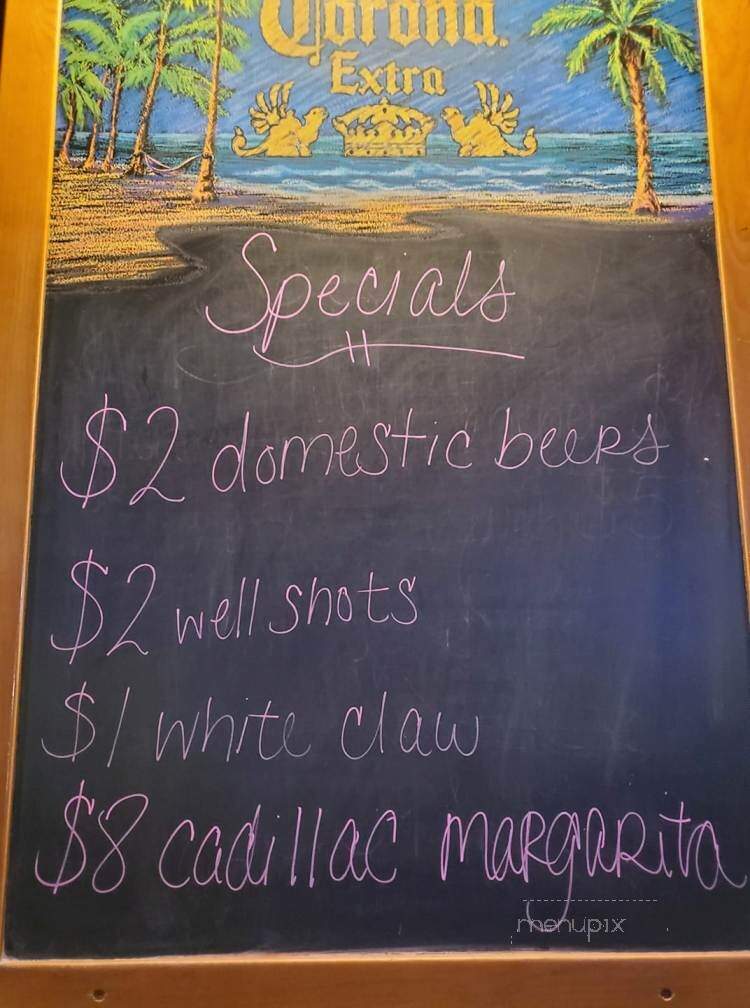 Corona.
Extra
Specials
$2 domestic beers
$2 well shots
$1 white claw
$8 cadillac margarita
menupix